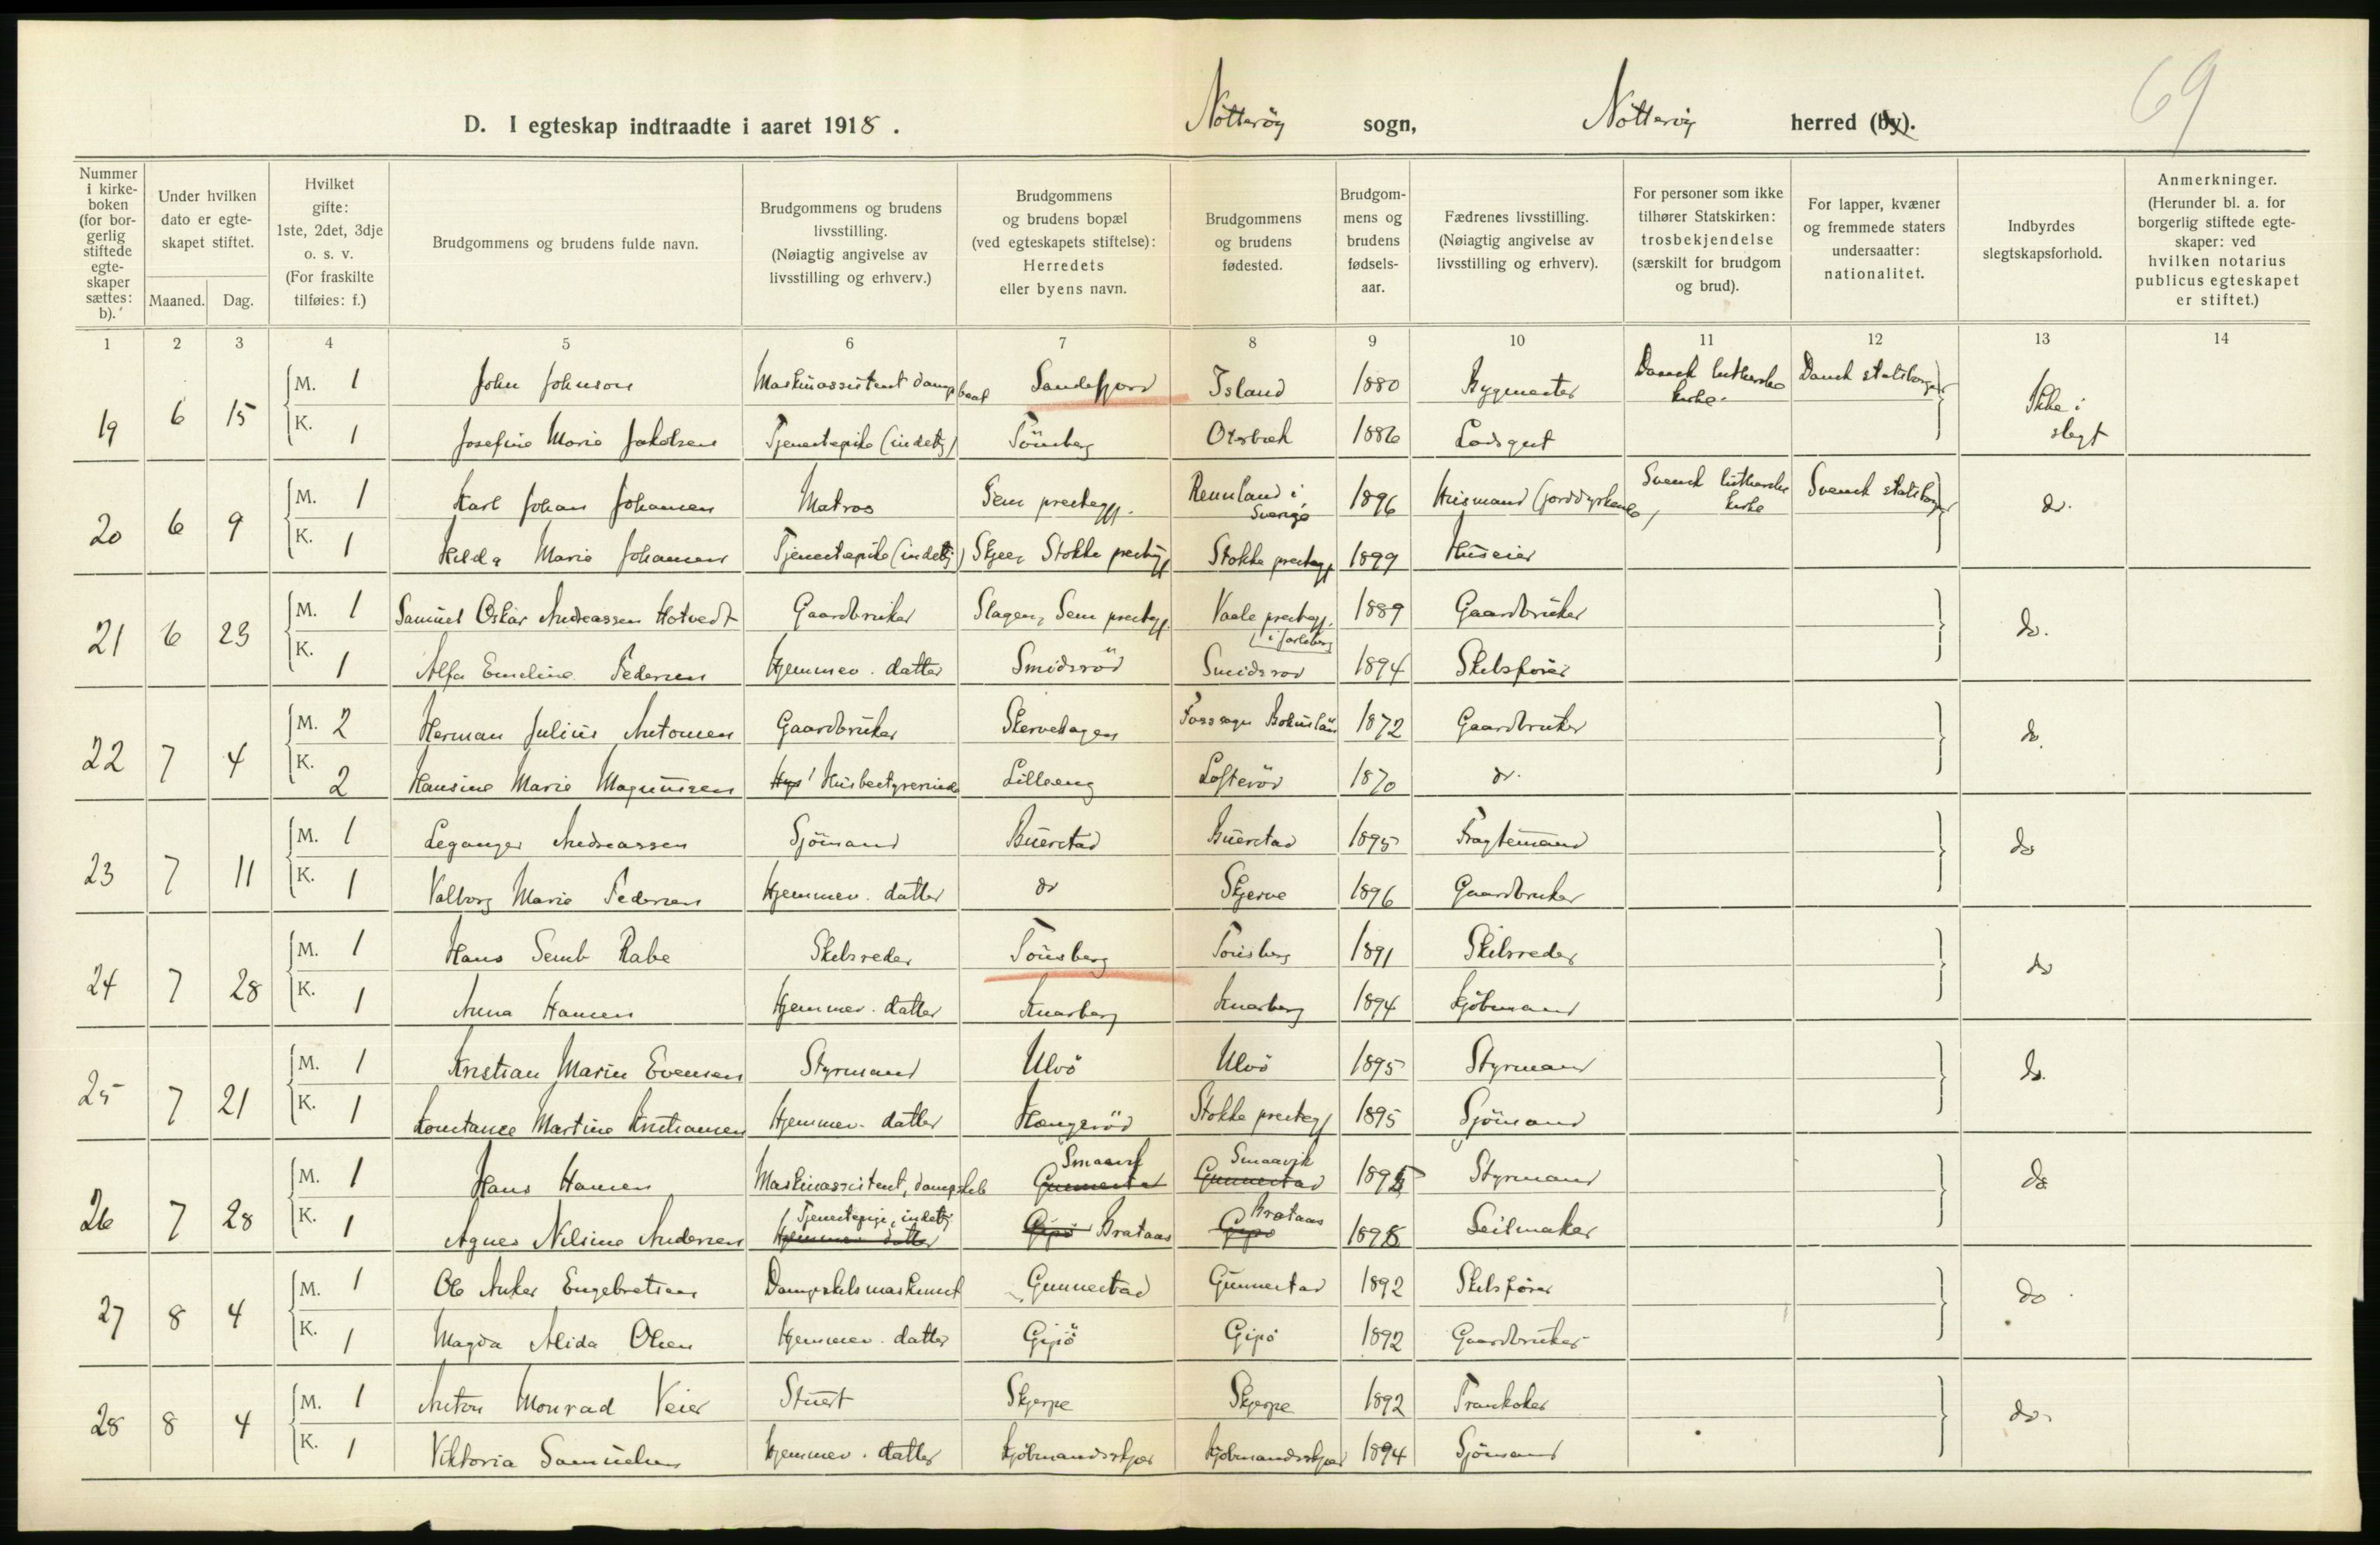 69
D. I egteskap indtraadte i aaret 1918. Nötteröy sogn, Nötteröy herred (by).
Nummer i kirkeboken (for borgerlig stiftede egteskaper sættes: b).
Under hvilken dato er egteskapet stiftet.
Maaned. Dag.
Hvilket gifte: 1ste, 2det, 3dje o. s. v. (For fraskilte tilføies: f.)
Brudgommens og brudens fulde navn.
Brudgommens og brudens livsstilling. (Nøiagtig angivelse av livsstilling og erhverv.)
Brudgommens og brudens bopæl (ved egteskapets stiftelse): Herredets eller byens navn.
Brudgommens og brudens fødested.
Brudgommens og brudens fødselsaar.
Fædrenes livsstilling. (Nøiagtig angivelse av livsstilling og erhverv).
For personer som ikke tilhører Statskirken: trosbekjendelse (særskilt for brudgom og brud).
For lapper, kvæner og fremmede staters undersaatter: nationalitet.
Indbyrdes slegtskapsforhold.
Anmerkninger. (Herunder bl. a. for borgerlig stiftede egteskaper: ved hvilken notarius publicus egteskapet er stiftet.)
1 2 3 4 5 6 7 8 9 10 11 12 13 14
19 6 15 M. 1 John Johnson Maskinassistent dampbaat Sandefjord Island 1880 Bygmester Dansk lutherske kirke. Dansk statsborger Ikke i slegt
K. 1 Josefine Marie Jakobsen Tjenestepike (indetj) Tönsberg Orsbæk 1886 Lodsgut
20 6 9 M. 1 Karl Johan Johansen Matros Sem prestegj. Rennland i Sverige 1896 Husmand (jorddyrkende) Svensk lutherske kirke Svensk statsborger do.
K. 1 Hilda Marie Johansen Tjenestepike (indetj) Skjee, Stokke prestegj Stokke prestegj 1899 Huseier
21 6 23 M. 1 Samuel Oskar Andreassen Hotvedt Gaardbruker Slagen, Sem prestegj. Vaale prestegj. i Jarlsberg 1889 Gaardbruker do.
K. 1 Alfa Emeline Pedersen Hjemmev. datter Smidsröd Smidsrod 1894 Skibsförer
22 7 4 M. 2 Herman Julius Antonsen Gaardbruker Skervehagen Foss sogn Bohuslän 1872 Gaardbruker do.
K. 2 Hansine Marie Magnussen Husbestyrerinde Lilleeng Lofteröd 1870 do.
23 7 11 M. 1 Leganger Andreassen Sjömand Buerstad Buerstad 1895 Fragtemand do
K. 1 Valborg Marie Pedersen Hjemmev. datter do Skjerve 1896 Gaardbruker
24 7 28 M. 1 Hans Semb Rabe Skibsreder Tönsberg Tönsberg 1891 Skibsreder do
K. 1 Anna Hansen Hjemmev. datter Knarberg Knarberg 1894 Kjöbmand
25 7 21 M. 1 Kristian Marin Evensen Styrmand Ulvö Ulvö 1895 Styrmand do.
K. 1 Konstance Martine Kristiansen Hjemmev. datter Hængeröd Stokke prestegj 1895 Sjömand
26 7 28 M. 1 Hans Hansen Maskinassistent, dampskib Smaavik Gunnestad Smaavik Gunnestad 1895 Styrmand do
K. 1 Agnes Nilsine Andersen Tjenestepige, indetj Hjemmev datter Gipö Brataas Brataas Gipö 1898 Seilmaker
27 8 4 M. 1 Ole Anker Engebretsen Dampskibsmaskinist Gunnestad Gunnestad 1892 Skibsförer do
K. 1 Magda Alida Olsen Hjemmev. datter Gipö Gipö 1892 Gaardbruker
28 8 4 M. 1 Anton Monrad Veier Stuert Skjerpe Skjerpe 1892 Trankoker do.
K. 1 Viktoria Samuelsen Hjemmev. datter Kjöbmandsskjær Kjöbmandsskjær 1894 Sjömand